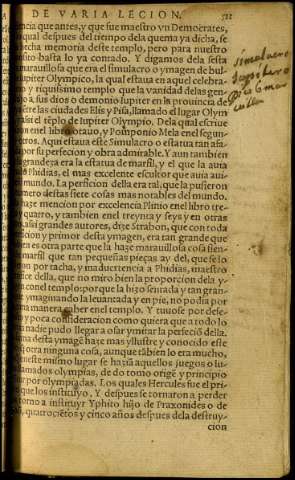 DE VARIA LECION.
cia que antes, y que fue maestro vn Democrates,
qual despues del tiempo della quema ya dicha, se
cha memoria deste templo, pero para nuestro
sito basta lo ya contado. Y digamos dela sexta
marauillosa que era el simulacro o ymagen de bul
Iupiter Olympico, la qual estaua en aquel celebra-
y riquissimo templo que la vanidad delas gen-
a sus dios o demonio Iupiter en la prouincia de
tre las ciudades Elis y Pisa, llamado el lugar Olym
assi el tēplo de Iupiter Olympio. Dela qual escriue
en el libro otauo, y Pomponio Mela en el segun-
Aqui estaua este Simulacro o estatua tan afa-
por su perfecion y obra admirable. Y aun tambien
grandeza era la estatua de marfil, y el que la auia
Phidias, el mas excelente esculptor que auia aui-
mundo. La perficion della era tal, que la pusieron
numero destas siete cosas mas notables del mundo.
haze mencion por excelencia Plinio en el libro tre-
y quatro, y tambien en el treynta y seys y en otras
assi grandes autores, dize Strabon, que con toda
cion y primor desta ymagen, era tan grande que
en es otra parte que la haze marauillosa cosa sien-
marfil que tan pequeñas pieças ay del, que se lo
on por tacha, y inaduertencia a Phidias, maestro
fice della, que no miro bien la proporcion della y
con el templo: porque la hizo sentada y tan gran-
ymaginando la leuantada y en pie, no podia por
na manera caber en el templo. Y tuuose por defe-
y poca consideracion como quiera que a todo lo
nadie pudo llegar a osar ymitar la perfeciō della.
na desta ymagē haze mas yllustre y conocido este
que otra ninguna cosa, aunque tābien lo era mucho,
este mismo lugar se haziā aquellos juegos o lu-
lamados olympias, de do tomo origē y principio
por olympiadas. Los quales Hercules fue el pri-
que los instituyo. Y despues se tornaron a perder
torno a instituyr Yphito hijo de Praxonides o de
, quatrociētos y cinco años despues dela destruy
cion
simulacro